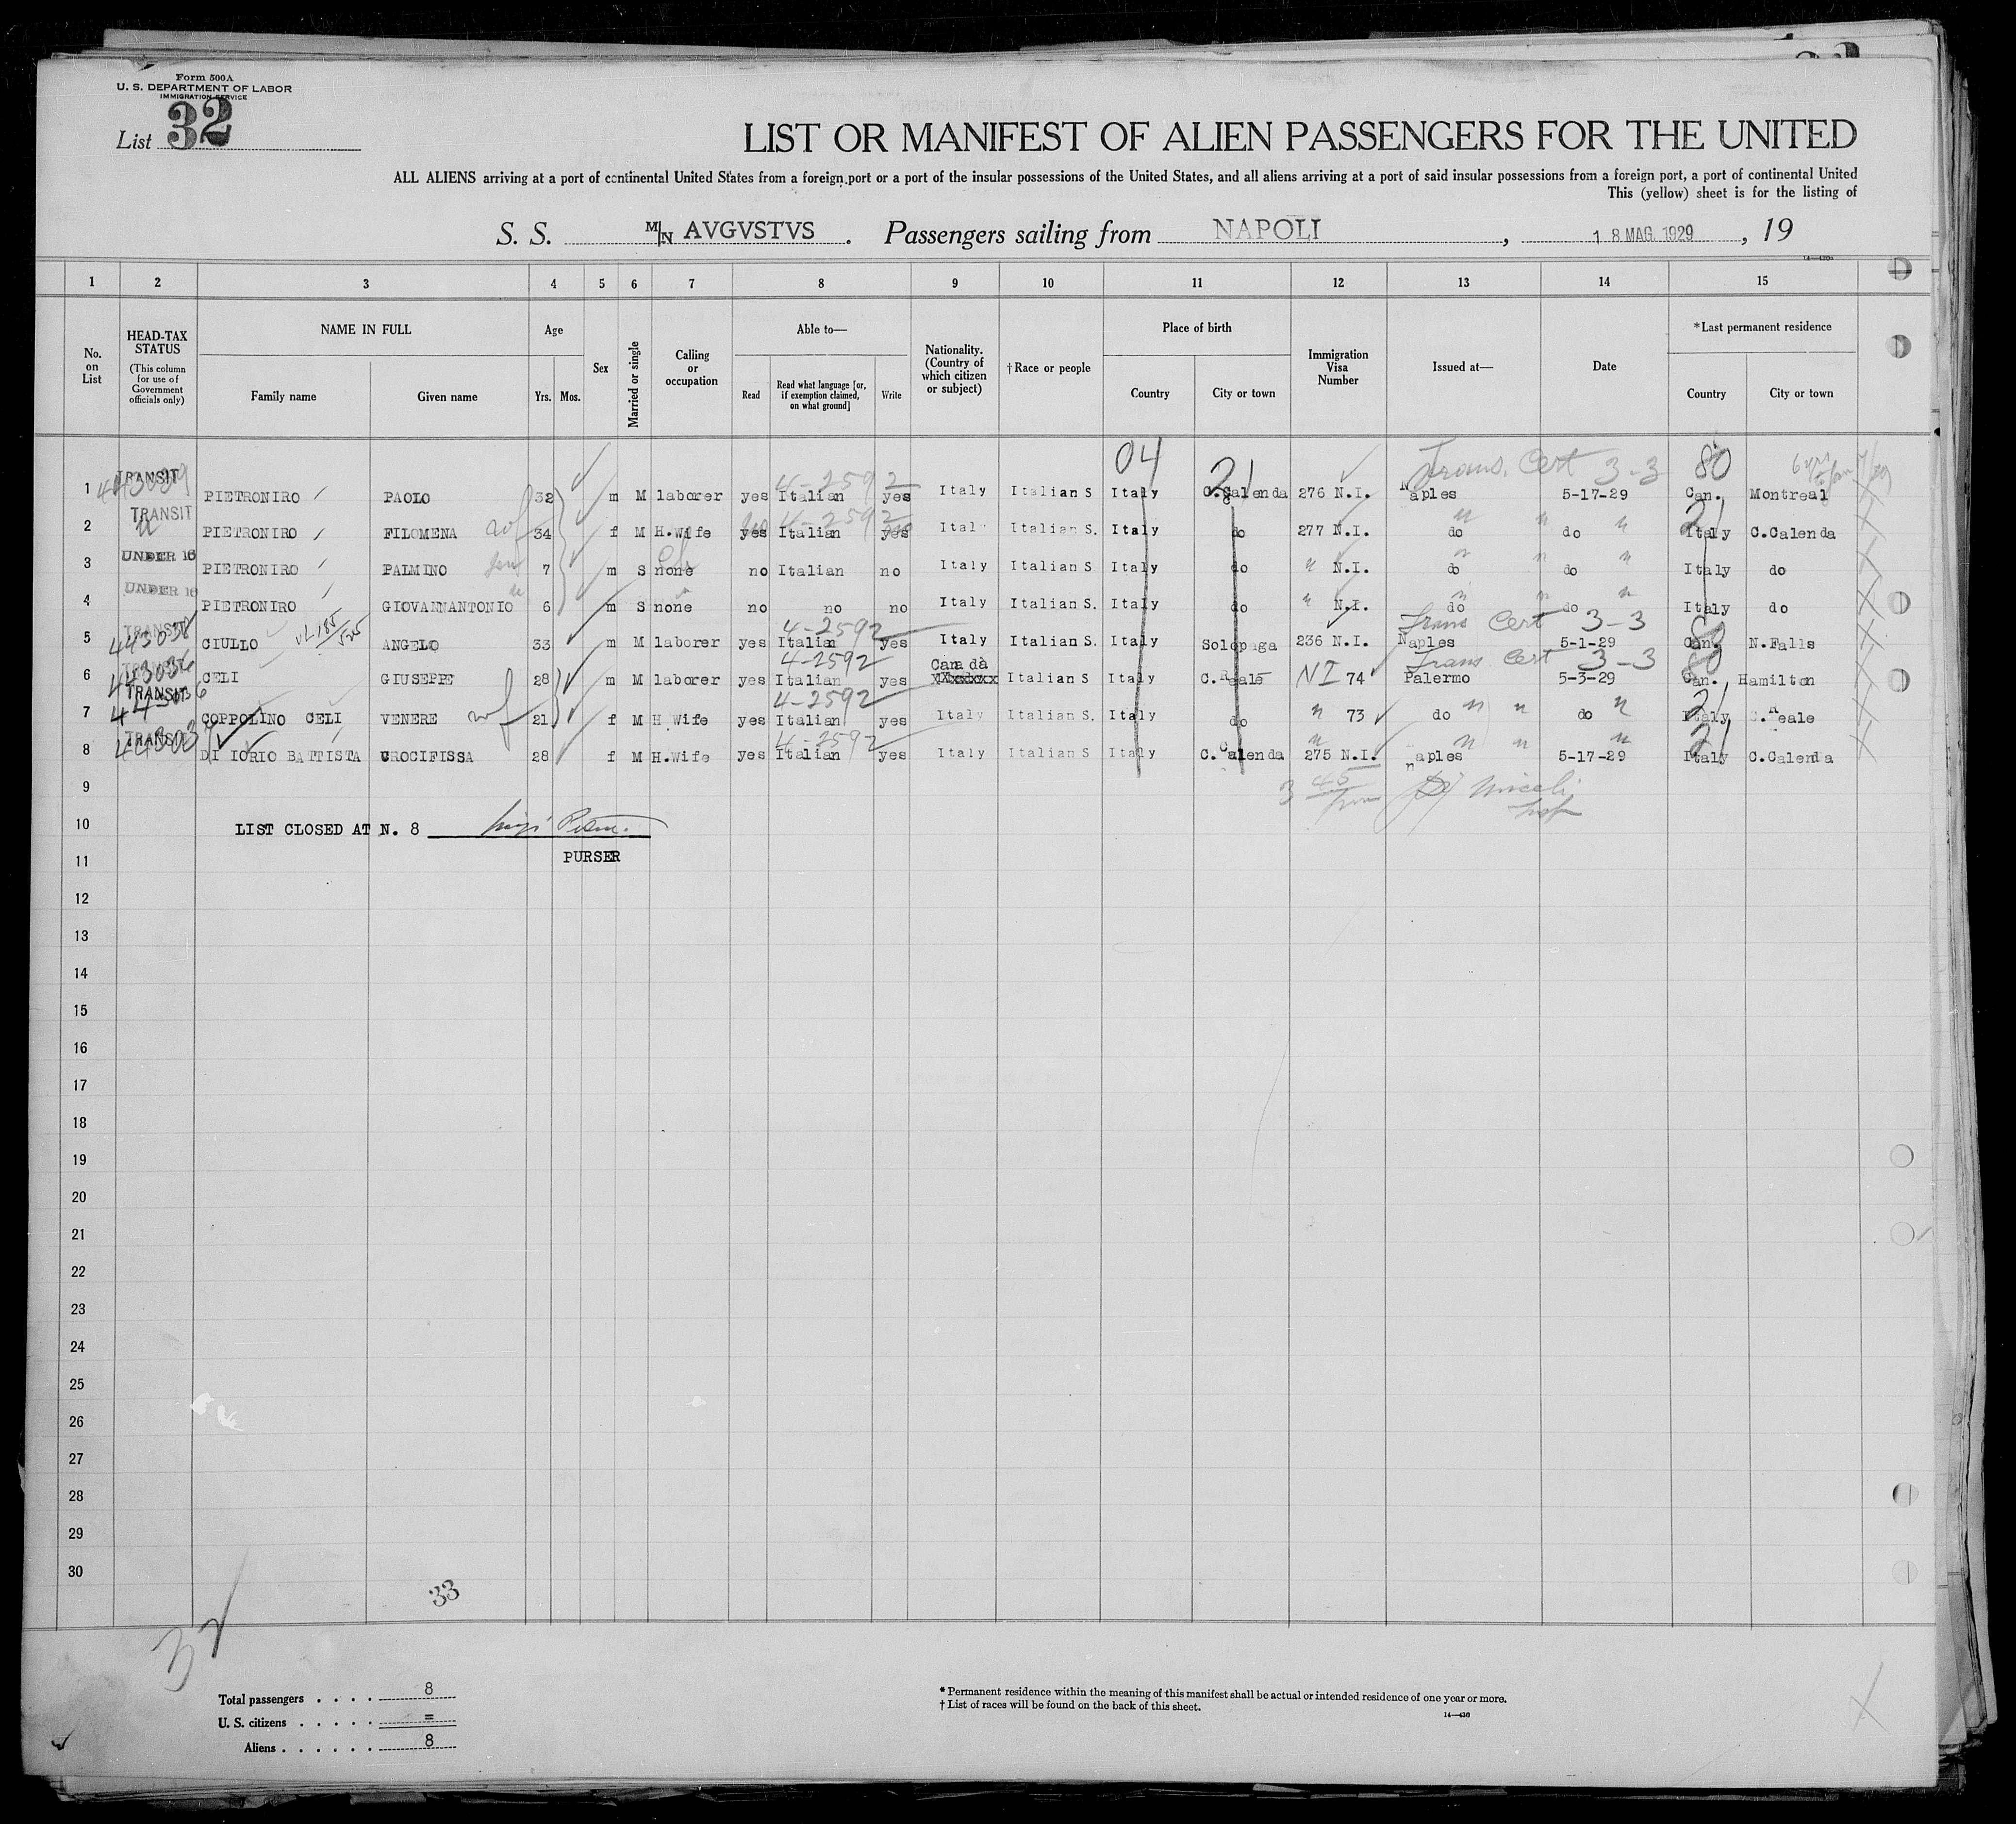 Form 500A
U. S. DEPARTMENT OF LABOR
IMMIGRATION SERVICE
List 32
LIST OR MANIFEST OF ALIEN PASSENGERS FOR THE UNITED
ALL ALIENS arriving at a port of continental United States from a foreign port or a port of the insular possessions of the United States, and all aliens arriving at a port of said insular possessions from a foreign port, a port of continental United
This (yellow) sheet is for the listing of
S. S. M/N AVGVSTVS . Passengers sailing from NAPOLI , 18 MAG. 1929 , 19
1 2 3 4 5 6 7 8 9 10 11 12 13 14 15
No. on List
HEAD-TAX STATUS
(This column for use of Government officials only)
NAME IN FULL
Family name Given name
Age
Yrs. Mos.
Sex
Married or single
Calling or occupation
Able to—
Read
Read what language [or, if exemption claimed, on what ground]
Write
Nationality. (Country of which citizen or subject)
† Race or people
Place of birth
Country City or town
Immigration Visa Number
Issued at—
Date
* Last permanent residence
Country City or town
04 21 Trans. Cert 3-3 80
1 TRANSIT 443039 PIETRONIRO PAOLO 32 m M laborer yes Italian 4-2592 yes Italy Italian S Italy C.Calenda 276 N.I. Naples 5-17-29 Can. Montreal
2 TRANSIT PIETRONIRO FILOMENA wf 34 f M H.Wife yes Italian 4-2592 yes Italy Italian S. Italy do 277 N.I. do do 21 Italy C.Calenda
3 UNDER 16 PIETRONIRO PALMINO 7 m S none no Italian no Italy Italian S Italy do " N.I. do do Italy do
4 UNDER 16 PIETRONIRO GIOVANNANTONIO 6 m S none no no no Italy Italian S. Italy do " N.I. do do Italy do
Trans Cert 3-3 80
5 TRANSIT 443038 CIULLO ANGELO 33 m M laborer yes Italian 4-2592 yes Italy Italian S. Italy Solopaga 236 N.I. Naples 5-1-29 Can. N.Falls
Trans Cert 3-3 80
6 443036 CELI GIUSEPPE 28 m M laborer yes Italian 4-2592 yes Canada Italian S Italy C.Reale NI 74 Palermo 5-3-29 Can. Hamilton
7 TRANSIT COPPOLINO CELI VENERE wf 21 f M H Wife yes Italian 4-2592 yes Italy Italian S. Italy do " 73 do do 21 Italy C.Reale
8 TRANSIT DI IORIO BATTISTA CROCIFISSA 28 f M H.Wife yes Italian 4-2592 yes Italy Italian S Italy C.Calenda 275 N.I. Naples 5-17-29 21 Italy C.Calenda
9
10 LIST CLOSED AT N. 8
11 PURSER
12
13
14
15
16
17
18
19
20
21
22
23
24
25
26
27
28
29
30
33
32
Total passengers . . . . 8
U. S. citizens . . . . . =
Aliens . . . . . . 8
* Permanent residence within the meaning of this manifest shall be actual or intended residence of one year or more.
† List of races will be found on the back of this sheet.
14—430